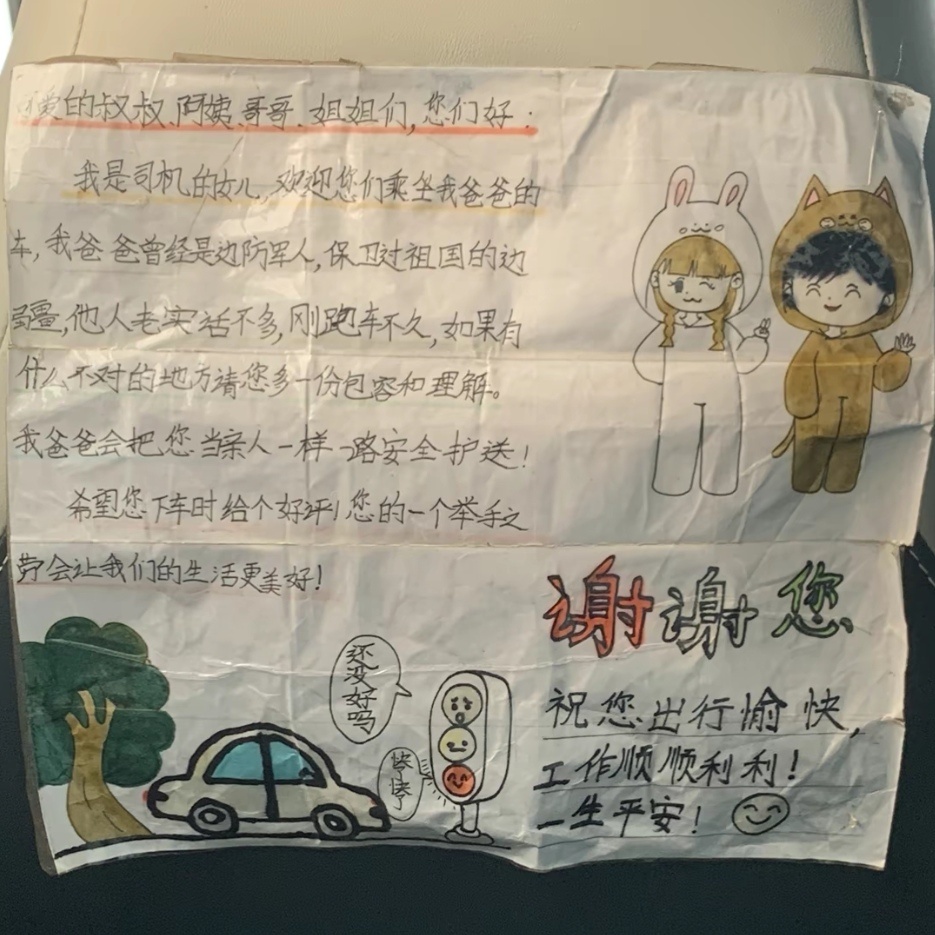 可爱的叔叔、阿姨、哥哥、姐姐们,您们好:
我是司机的女儿,欢迎您们乘坐我爸爸的
车,我爸爸曾经是边防军人,保卫过祖国的边
疆,他人老实话不多,刚跑车不久,如果有
什么不对的地方请您多一份包容和理解。
我爸爸会把您当亲人一样一路安全护送!
希望您下车时给个好评!您的一个举手之
劳会让我们的生活更美好!
谢谢您
还没好吗
快了快了
祝您出行愉快,
工作顺顺利利!
一生平安!